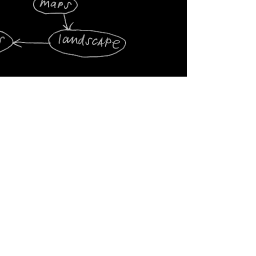 MAPS
landSCAPE